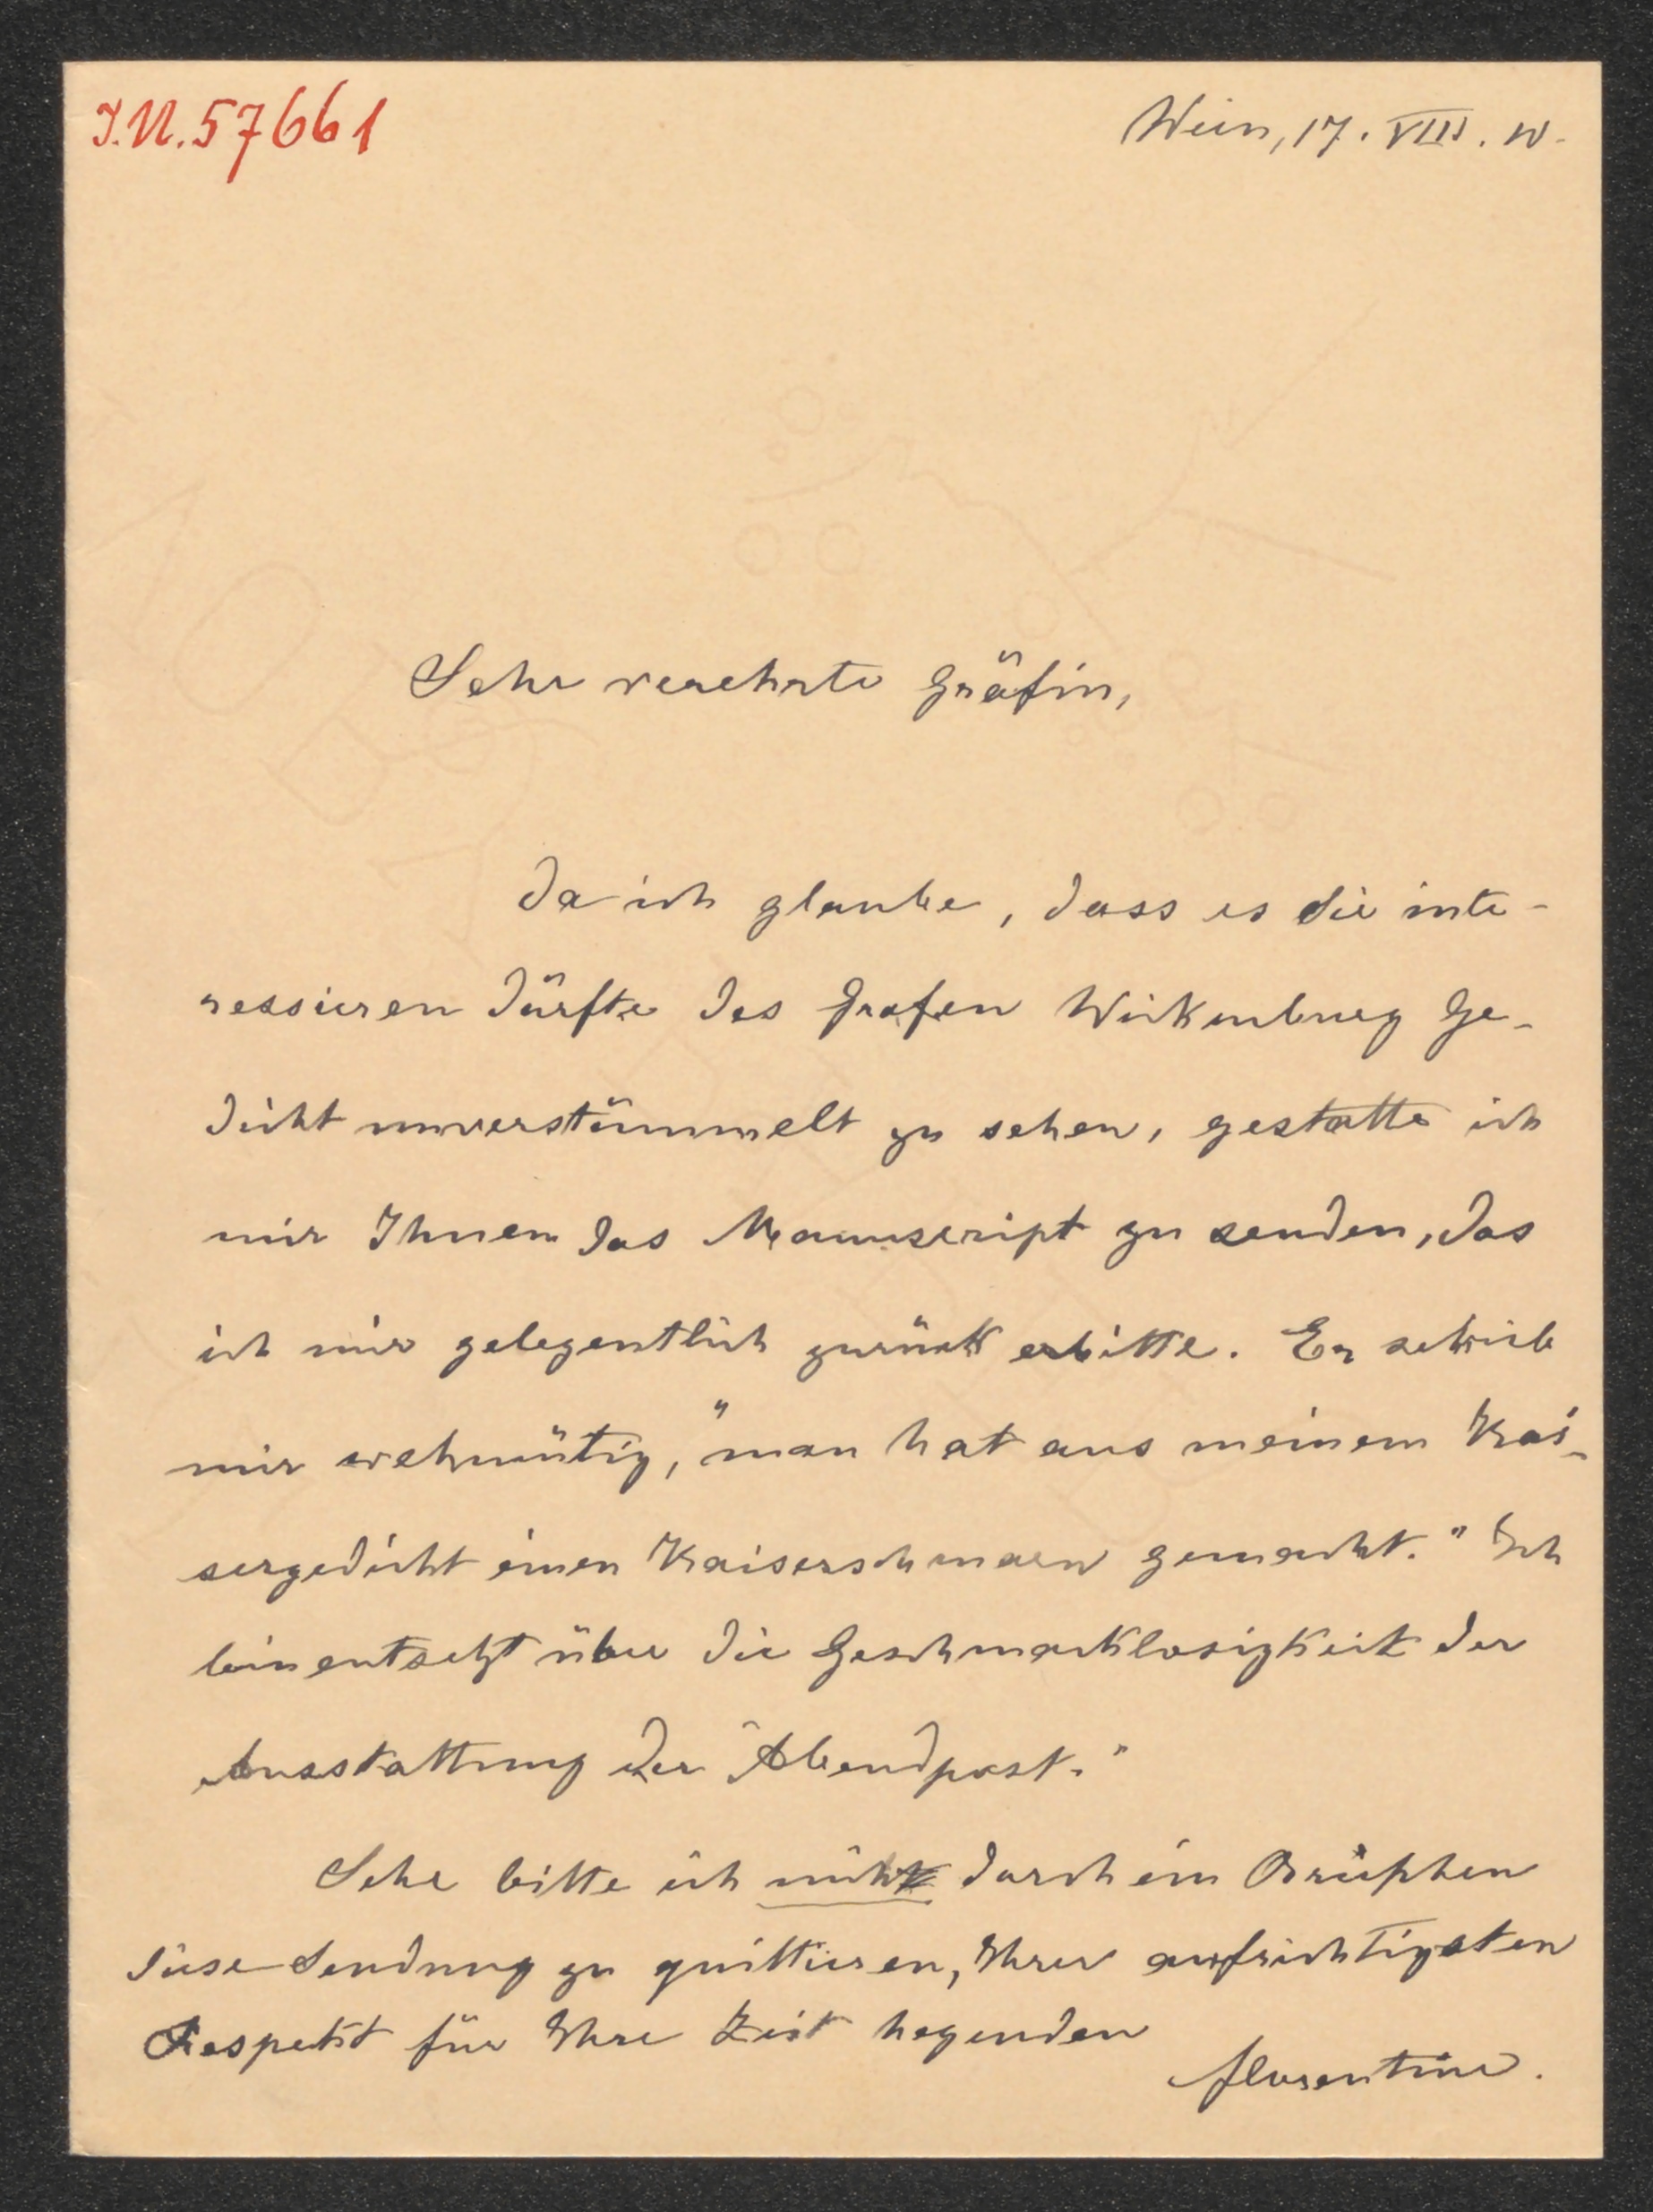 I.N. 57661
Wien, 17. VIII. 10.
Sehr verehrte Gräfin,
Da ich glaube, dass es Sie inte-
ressieren dürfte des Grafen Wickenburg Ge-
dicht unverstümmelt zu sehen, gestatte ich
mir Ihnen das Manuscript zu senden, das
ich mir gelegentlich zurück erbitte. Er schrieb
mir wehmütig, "man hat aus meinem Kai-
sergedicht einen Kaiserschmarn gemacht." Ich
bin entsetzt über die Geschmacklosigkeit der
Ausstattung der "Abendpost."
Sehr bitte ich nicht durch ein Briefchen
diese Sendung zu quittieren, Ihrer aufrichtigsten
Respekt für Ihre Zeit hegenden
Florentine.